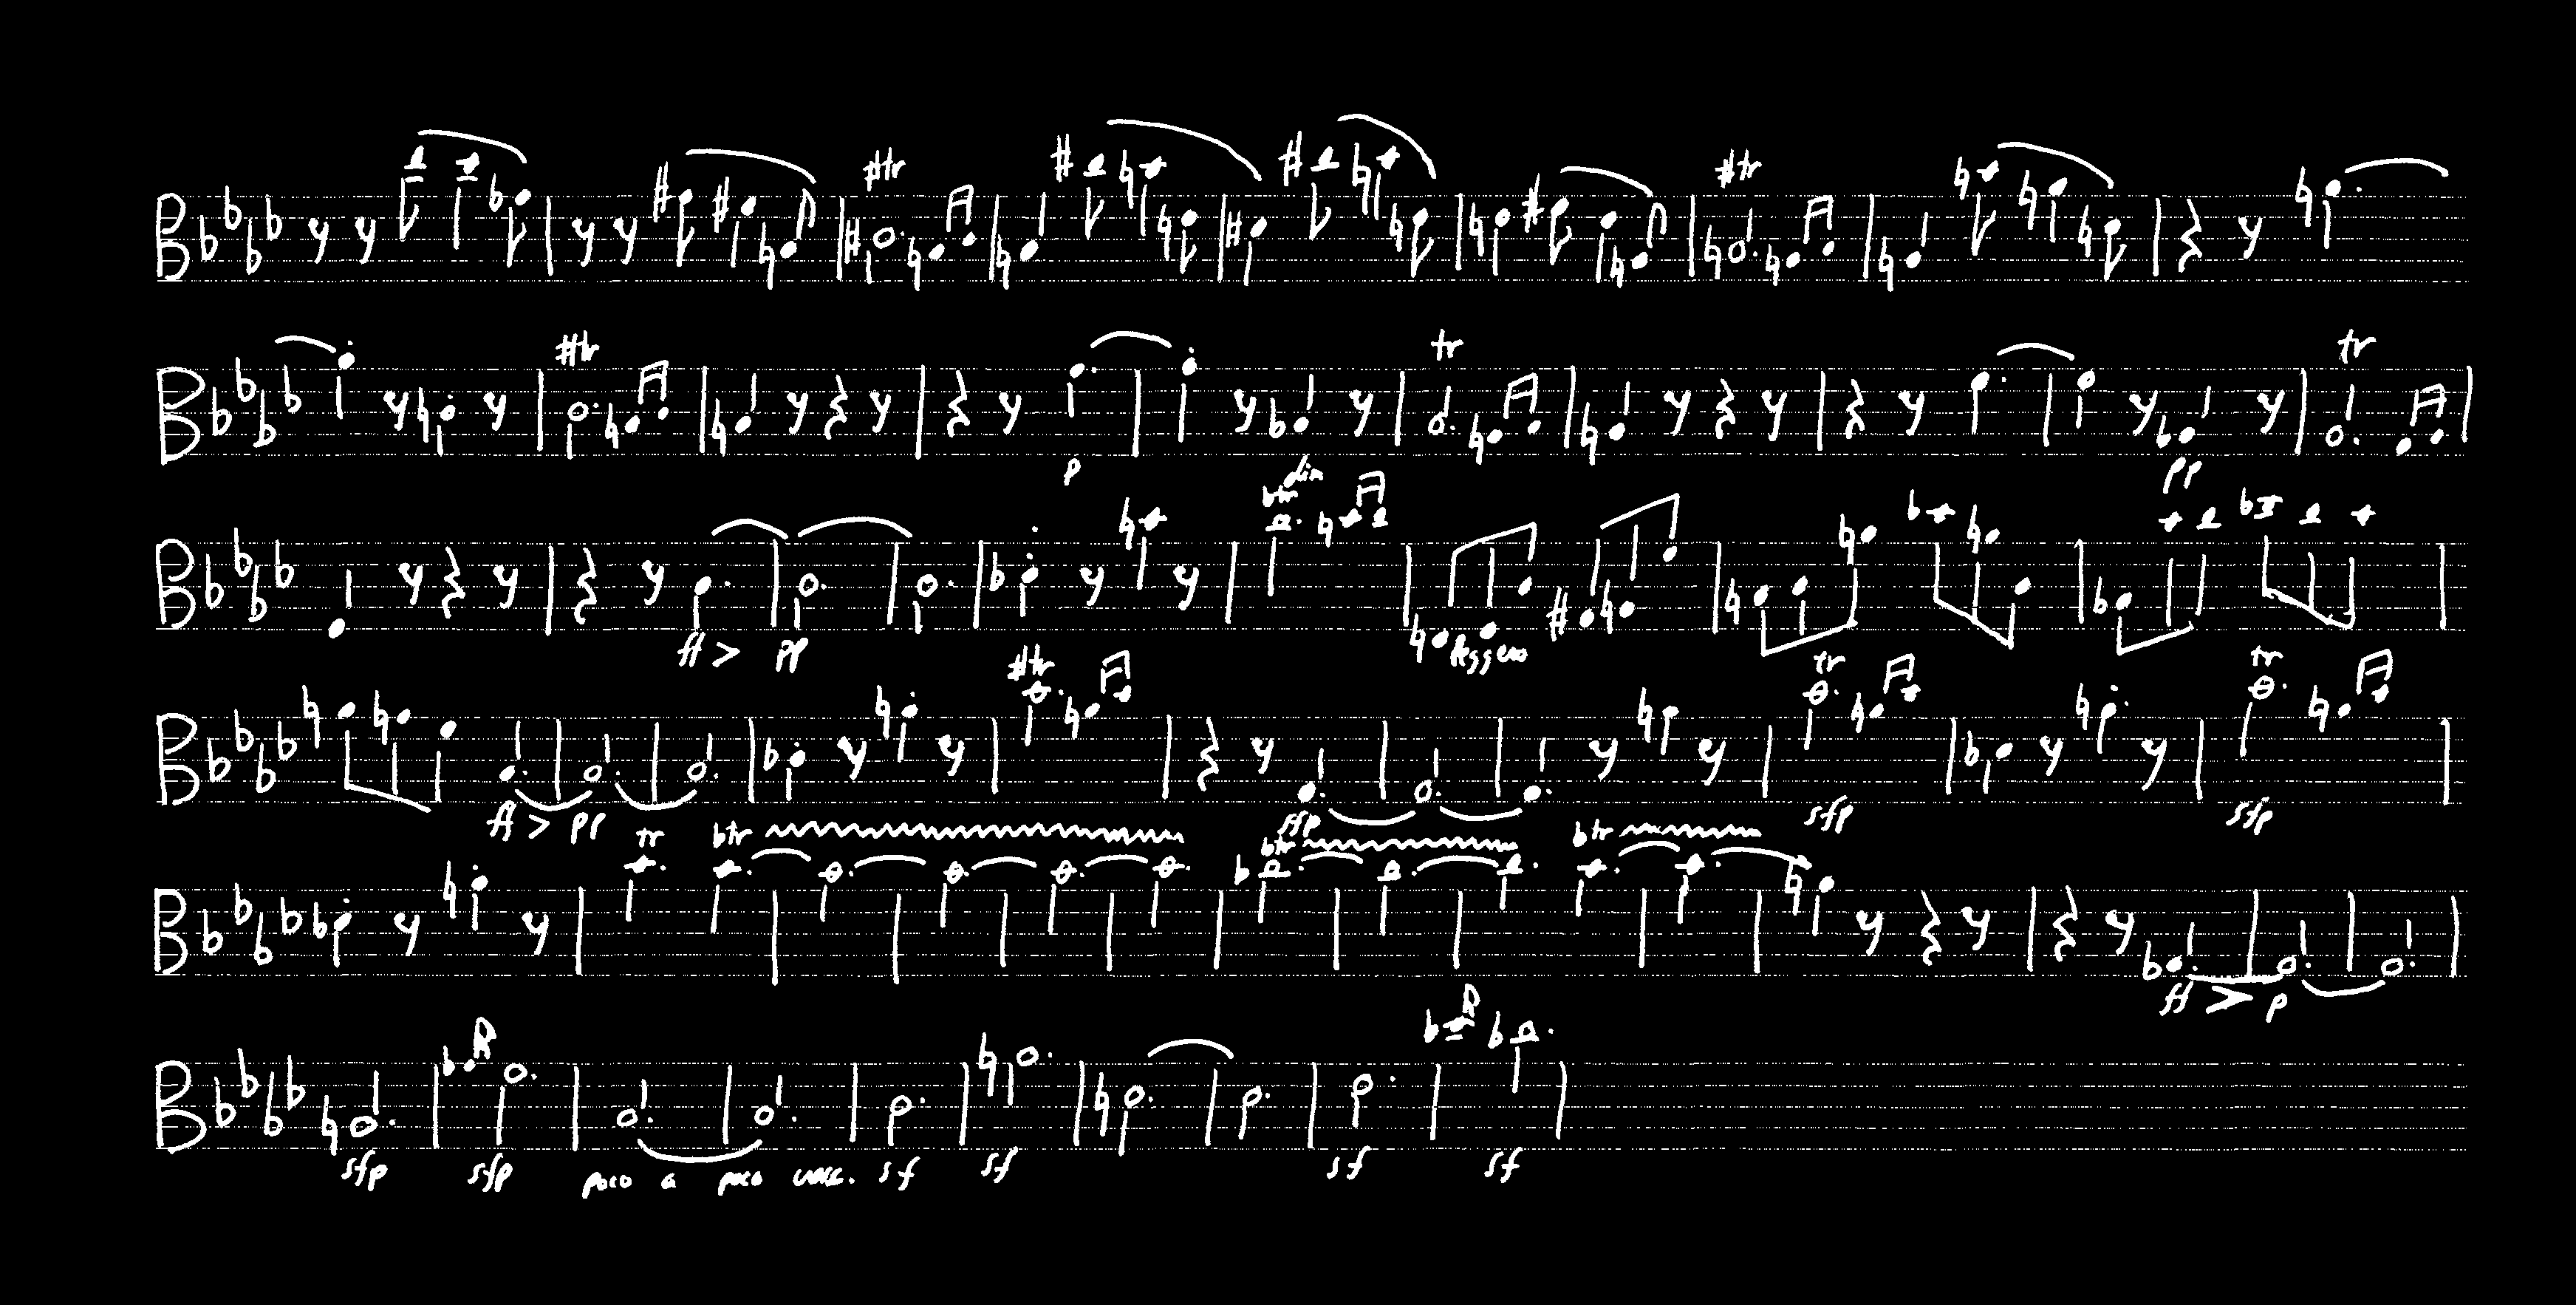 tr tr
tr tr
p pp
dim
tr
ff > pp leggero
tr tr tr
ff > pp sfp sfp sfp
tr tr tr tr
ff > p
sfp sfp poco a poco cresc. sf sf sf sf